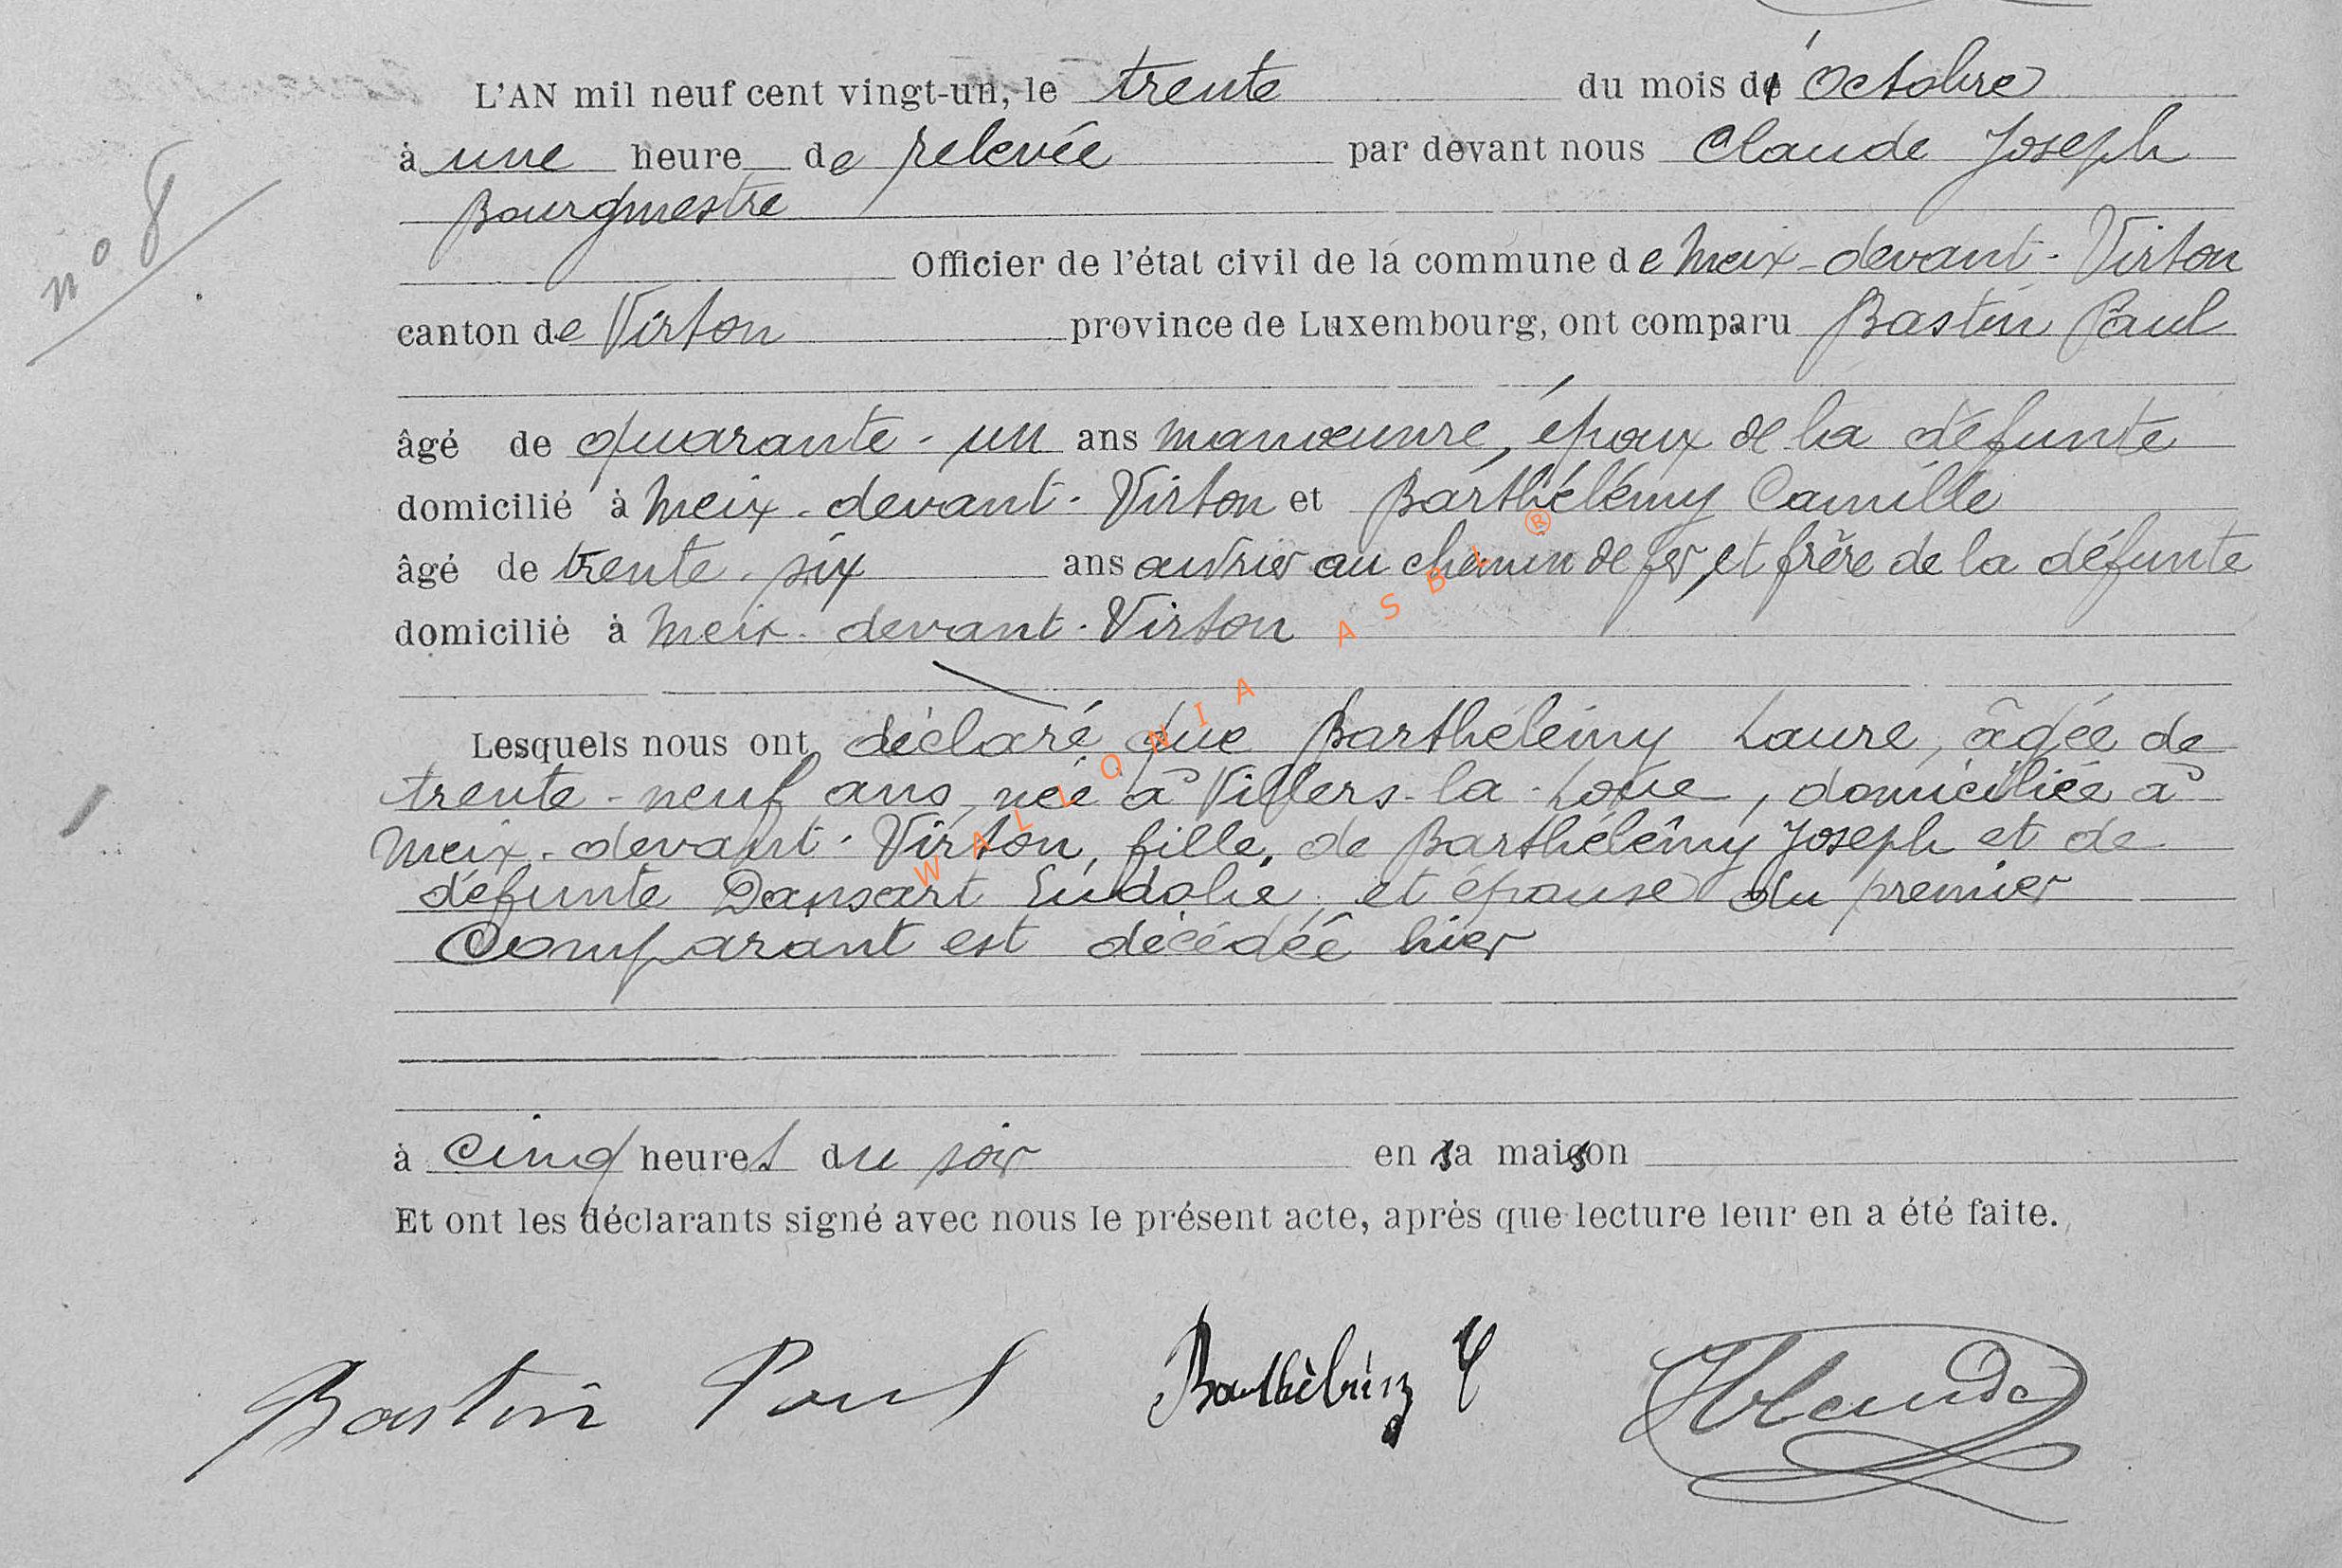 L'AN mil neuf cent vingt-un, le trente du mois d'Octobre
à une heure de relevée par devant nous Claude Joseph
Bourgmestre
n° 8
Officier de l'état civil de la commune de Meix-devant-Virton
canton de Virton province de Luxembourg, ont comparu Bastin Paul
âgé de quarante-un ans manœuvre, époux de la défunte
domicilié à Meix-devant-Virton et Barthélémy Camille
âgé de trente-six ans ouvrier au chemin de fer, et frère de la défunte
domicilié à Meix-devant-Virton
Lesquels nous ont déclaré que Barthélémy Laure, âgée de
trente-neuf ans, née à Villers-la-Loue, domiciliée à
Meix-devant-Virton, fille, de Barthélémy Joseph et de
défunte Dansart Eudolie, et épouse du premier
Comparant est décédée hier
à cinq heures du soir en sa maison
Et ont les déclarants signé avec nous le présent acte, après que lecture leur en a été faite.
Bastin Paul Barthélémy C JClaude
WALLONIA ASBL ®